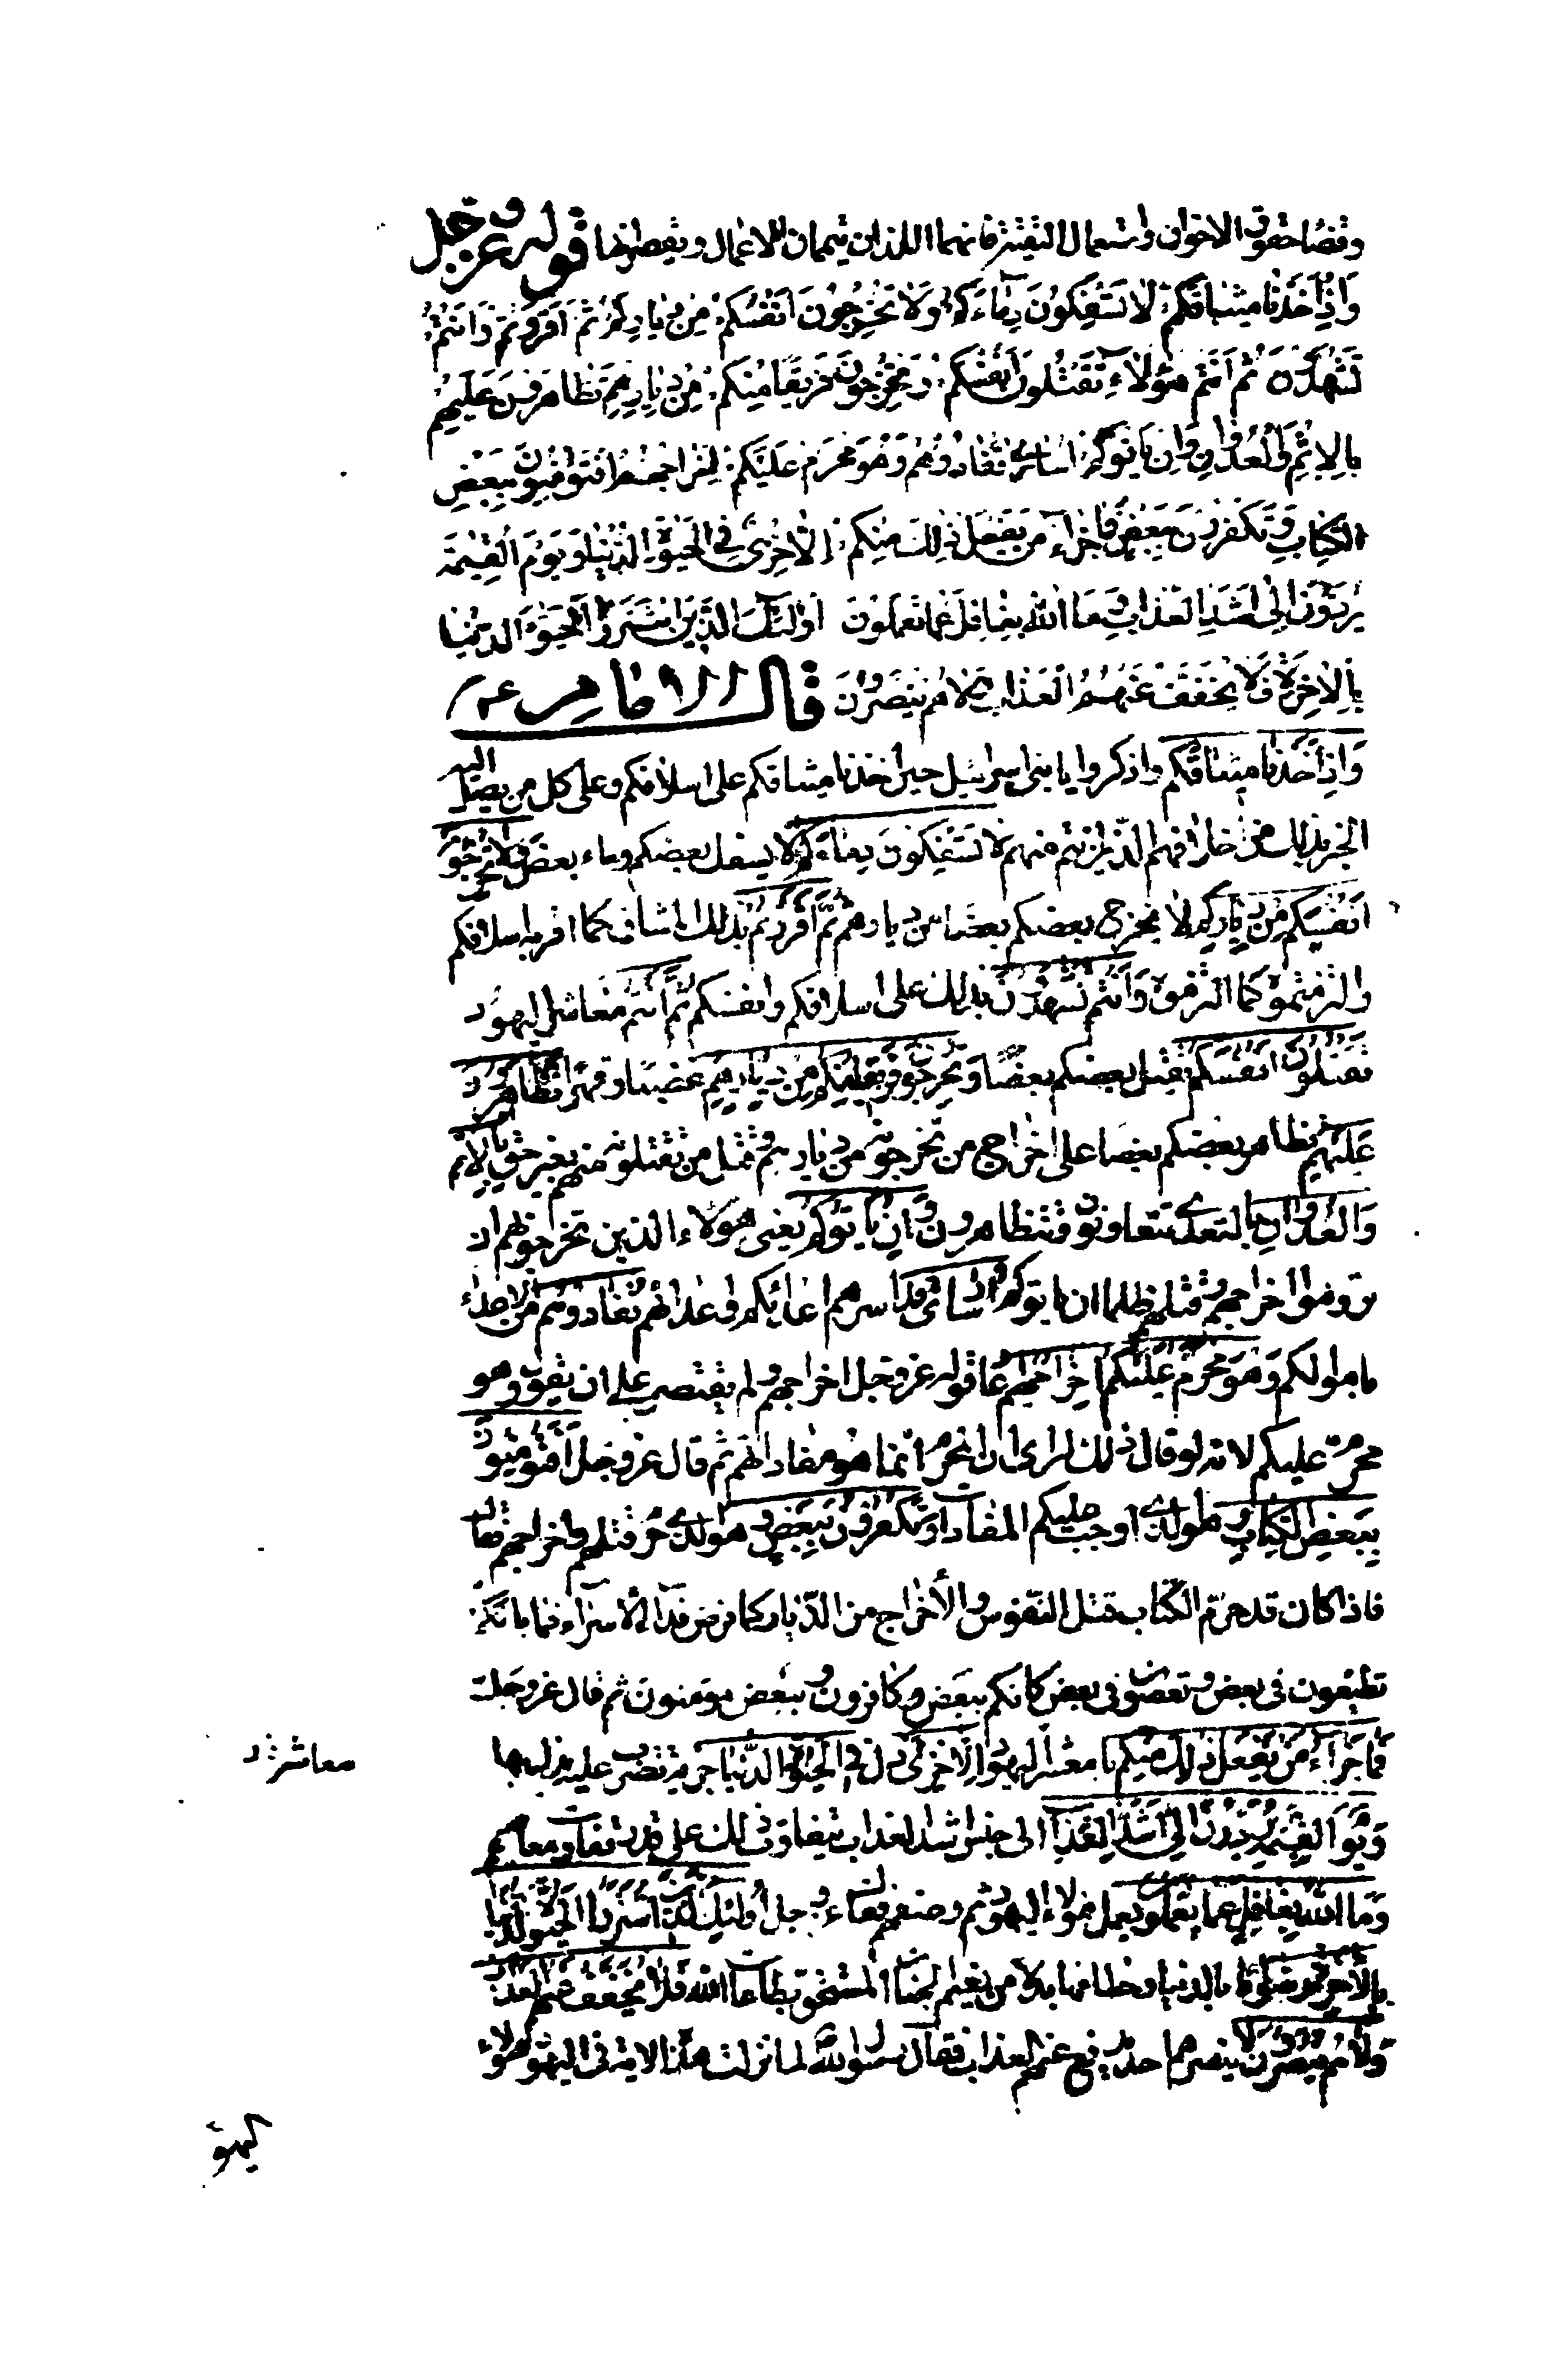 وقضا حقوق الاخوان واستعمال التقیة فانهما اللذان یتممان الاعمال ویقصرانها قوله عز وجل
وَاِذْ اَخَذْنا میثاقَکُمْ لا تَسْفِکُونَ دِماءَکُمْ وَلا تُخْرِجُونَ اَنْفُسَکُمْ مِنْ دِیارِکُمْ ثُمَّ اَقْرَرْتُمْ وَاَنْتُمْ
تَشْهَدُونَ ثُمَّ اَنْتُمْ هؤُلاءِ تَقْتُلُونَ اَنْفُسَکُمْ وَتُخْرِجُونَ فَریقًا مِنْکُمْ مِنْ دِیارِهِمْ تَظاهَرُونَ عَلَیْهِمْ
بِالْاِثْمِ وَالْعُدْوانِ وَاِنْ یَاْتُوکُمْ اُسارى تُفادُوهُمْ وَهُوَ مُحَرَّمٌ عَلَیْکُمْ اِخْراجُهُمْ اَفَتُؤْمِنُونَ بِبَعْضِ
الْکِتابِ وَتَکْفُرُونَ بِبَعْضٍ فَما جَزاءُ مَنْ یَفْعَلُ ذلِکَ مِنْکُمْ اِلّا خِزْیٌ فِی الْحَیوةِ الدُّنْیا وَیَوْمَ الْقِیٰمَةِ
یُرَدُّونَ اِلى اَشَدِّ الْعَذابِ وَمَا اللّٰهُ بِغافِلٍ عَمّا تَعْمَلُونَ اُولٰئِکَ الَّذینَ اشْتَرَوُا الْحَیوةَ الدُّنْیا
بِالْاٰخِرَةِ فَلا یُخَفَّفُ عَنْهُمُ الْعَذابُ وَلا هُمْ یُنْصَرُونَ قال الامام ع
وَاِذْ اَخَذْنا میثاقَکُمْ واذکروا یا بنی اسرائیل حین اخذنا میثاقکم على اسلافکم وعلى کل من یصل الیه
الخبر بذلک من اخلافهم الذین انتم منهم لا تَسْفِکُونَ دِماءَکُمْ لا یسفک بعضکم دماء بعض وَلا تُخْرِجُونَ
اَنْفُسَکُمْ مِنْ دِیارِکُمْ لا یخرج بعضکم بعضا من دیارهم ثُمَّ اَقْرَرْتُمْ بذلک المیثاق کما اقر به اسلافکم
والتزمتموه کما التزموه وَاَنْتُمْ تَشْهَدُونَ بذلک على اسلافکم وانفسکم ثُمَّ اَنْتُمْ معاشر الیهود
تَقْتُلُونَ اَنْفُسَکُمْ یقتل بعضکم بعضًا وَتُخْرِجُونَ فَریقًا مِنْکُمْ مِنْ دِیارِهِمْ غضبًا وقهرًا تَظاهَرُونَ
عَلَیْهِمْ یظاهر بعضکم بعضا على اخراج من تخرجونه من دیارهم وقتل من تقتلونه منهم بغیر حق بِالْاِثْمِ
وَالْعُدْوانِ بالتعدى تتعاونون وتتظاهرون وَاِنْ یَاْتُوکُمْ یعنى هؤلاء الذین تخرجونهم ان
تروموا اخراجهم وقتلهم ظلما ان یاتوکم اُسارى قد اسرهم اعدائکم واعدائهم تُفادُوهُمْ من الاعداء
باموالکم وَهُوَ مُحَرَّمٌ عَلَیْکُمْ اِخْراجُهُمْ اعاد قوله عز وجل اخراجهم ولم یقتصر على ان یقول وهو
محرم علیکم لانه لو قال ذلک لراى ان المحرم انما هو مفاداتهم ثم قال عز وجل اَفَتُؤْمِنُونَ
بِبَعْضِ الْکِتابِ وهو الذى اوجب علیکم المفاداة وَتَکْفُرُونَ بِبَعْضٍ وهو الذى حرم قتلهم واخراجهم فقال
فاذا کان قد حرم الکتاب قتل النفوس والاخراج من الدیار کما فرض فداء الاسراء فما بالکم
تطیعون فی بعض وتعصون فی بعض کانکم ببعض کافرون وببعض مؤمنون ثم قال عز وجل
فَما جَزاءُ مَنْ یَفْعَلُ ذلِکَ مِنْکُمْ یا معشر الیهود اِلّا خِزْیٌ ذل فِی الْحَیوةِ الدُّنْیا جزیة تضرب علیه یذل بها
معاشر
وَیَوْمَ الْقِیٰمَةِ یُرَدُّونَ اِلى اَشَدِّ الْعَذابِ الى جنس اشد العذاب یتفاوت ذلک على قدر تفاوت معاصیهم
وَمَا اللّٰهُ بِغافِلٍ عَمّا یَعْمَلُونَ یعمل هؤلاء الیهود ثم وصفهم فقال عز وجل اُولٰئِکَ الَّذینَ اشْتَرَوُا الْحَیوةَ الدُّنْیا
بِالْاٰخِرَةِ رضوا بالدنیا وحطامها بدلا من نعیم الجنات المستحق بطاعات الله فَلا یُخَفَّفُ عَنْهُمُ الْعَذابُ
وَلا هُمْ یُنْصَرُونَ لا ینصرهم احد یدفع عنهم العذاب فقال رسول الله لما نزلت هذه الایة فی الیهود هؤلاء